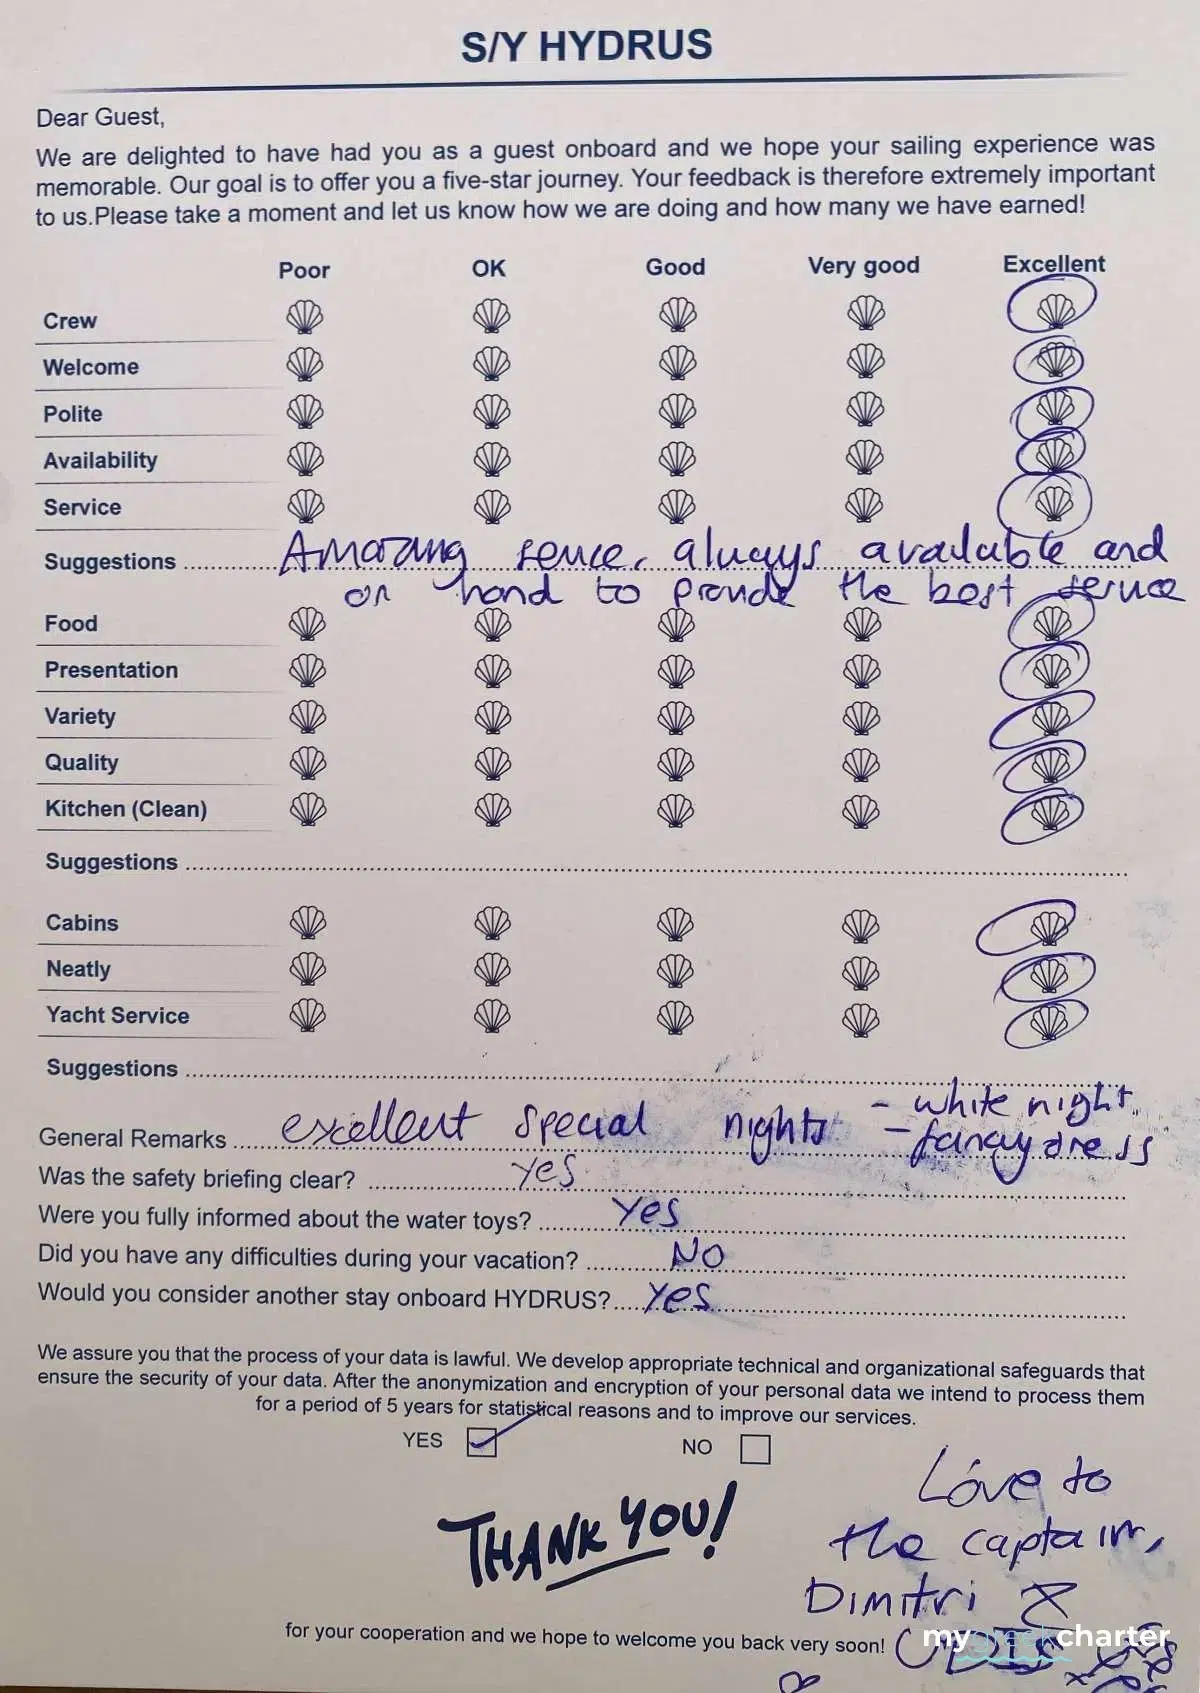 S/Y HYDRUS
Dear Guest,
We are delighted to have had you as a guest onboard and we hope your sailing experience was
memorable. Our goal is to offer you a five-star journey. Your feedback is therefore extremely important
to us.Please take a moment and let us know how we are doing and how many we have earned!
Poor OK Good Very good Excellent
Crew
Welcome
Polite
Availability
Service
Suggestions Amazing service, always available and
on hand to provide the best service
Food
Presentation
Variety
Quality
Kitchen (Clean)
Suggestions
Cabins
Neatly
Yacht Service
Suggestions
General Remarks excellent special nights - white night
- fancy dress
Was the safety briefing clear? yes
Were you fully informed about the water toys? Yes
Did you have any difficulties during your vacation? NO
Would you consider another stay onboard HYDRUS? Yes
We assure you that the process of your data is lawful. We develop appropriate technical and organizational safeguards that
ensure the security of your data. After the anonymization and encryption of your personal data we intend to process them
for a period of 5 years for statistical reasons and to improve our services.
YES NO
THANK YOU!
Love to
the captain,
Dimitri
for your cooperation and we hope to welcome you back very soon!
mygreekcharter